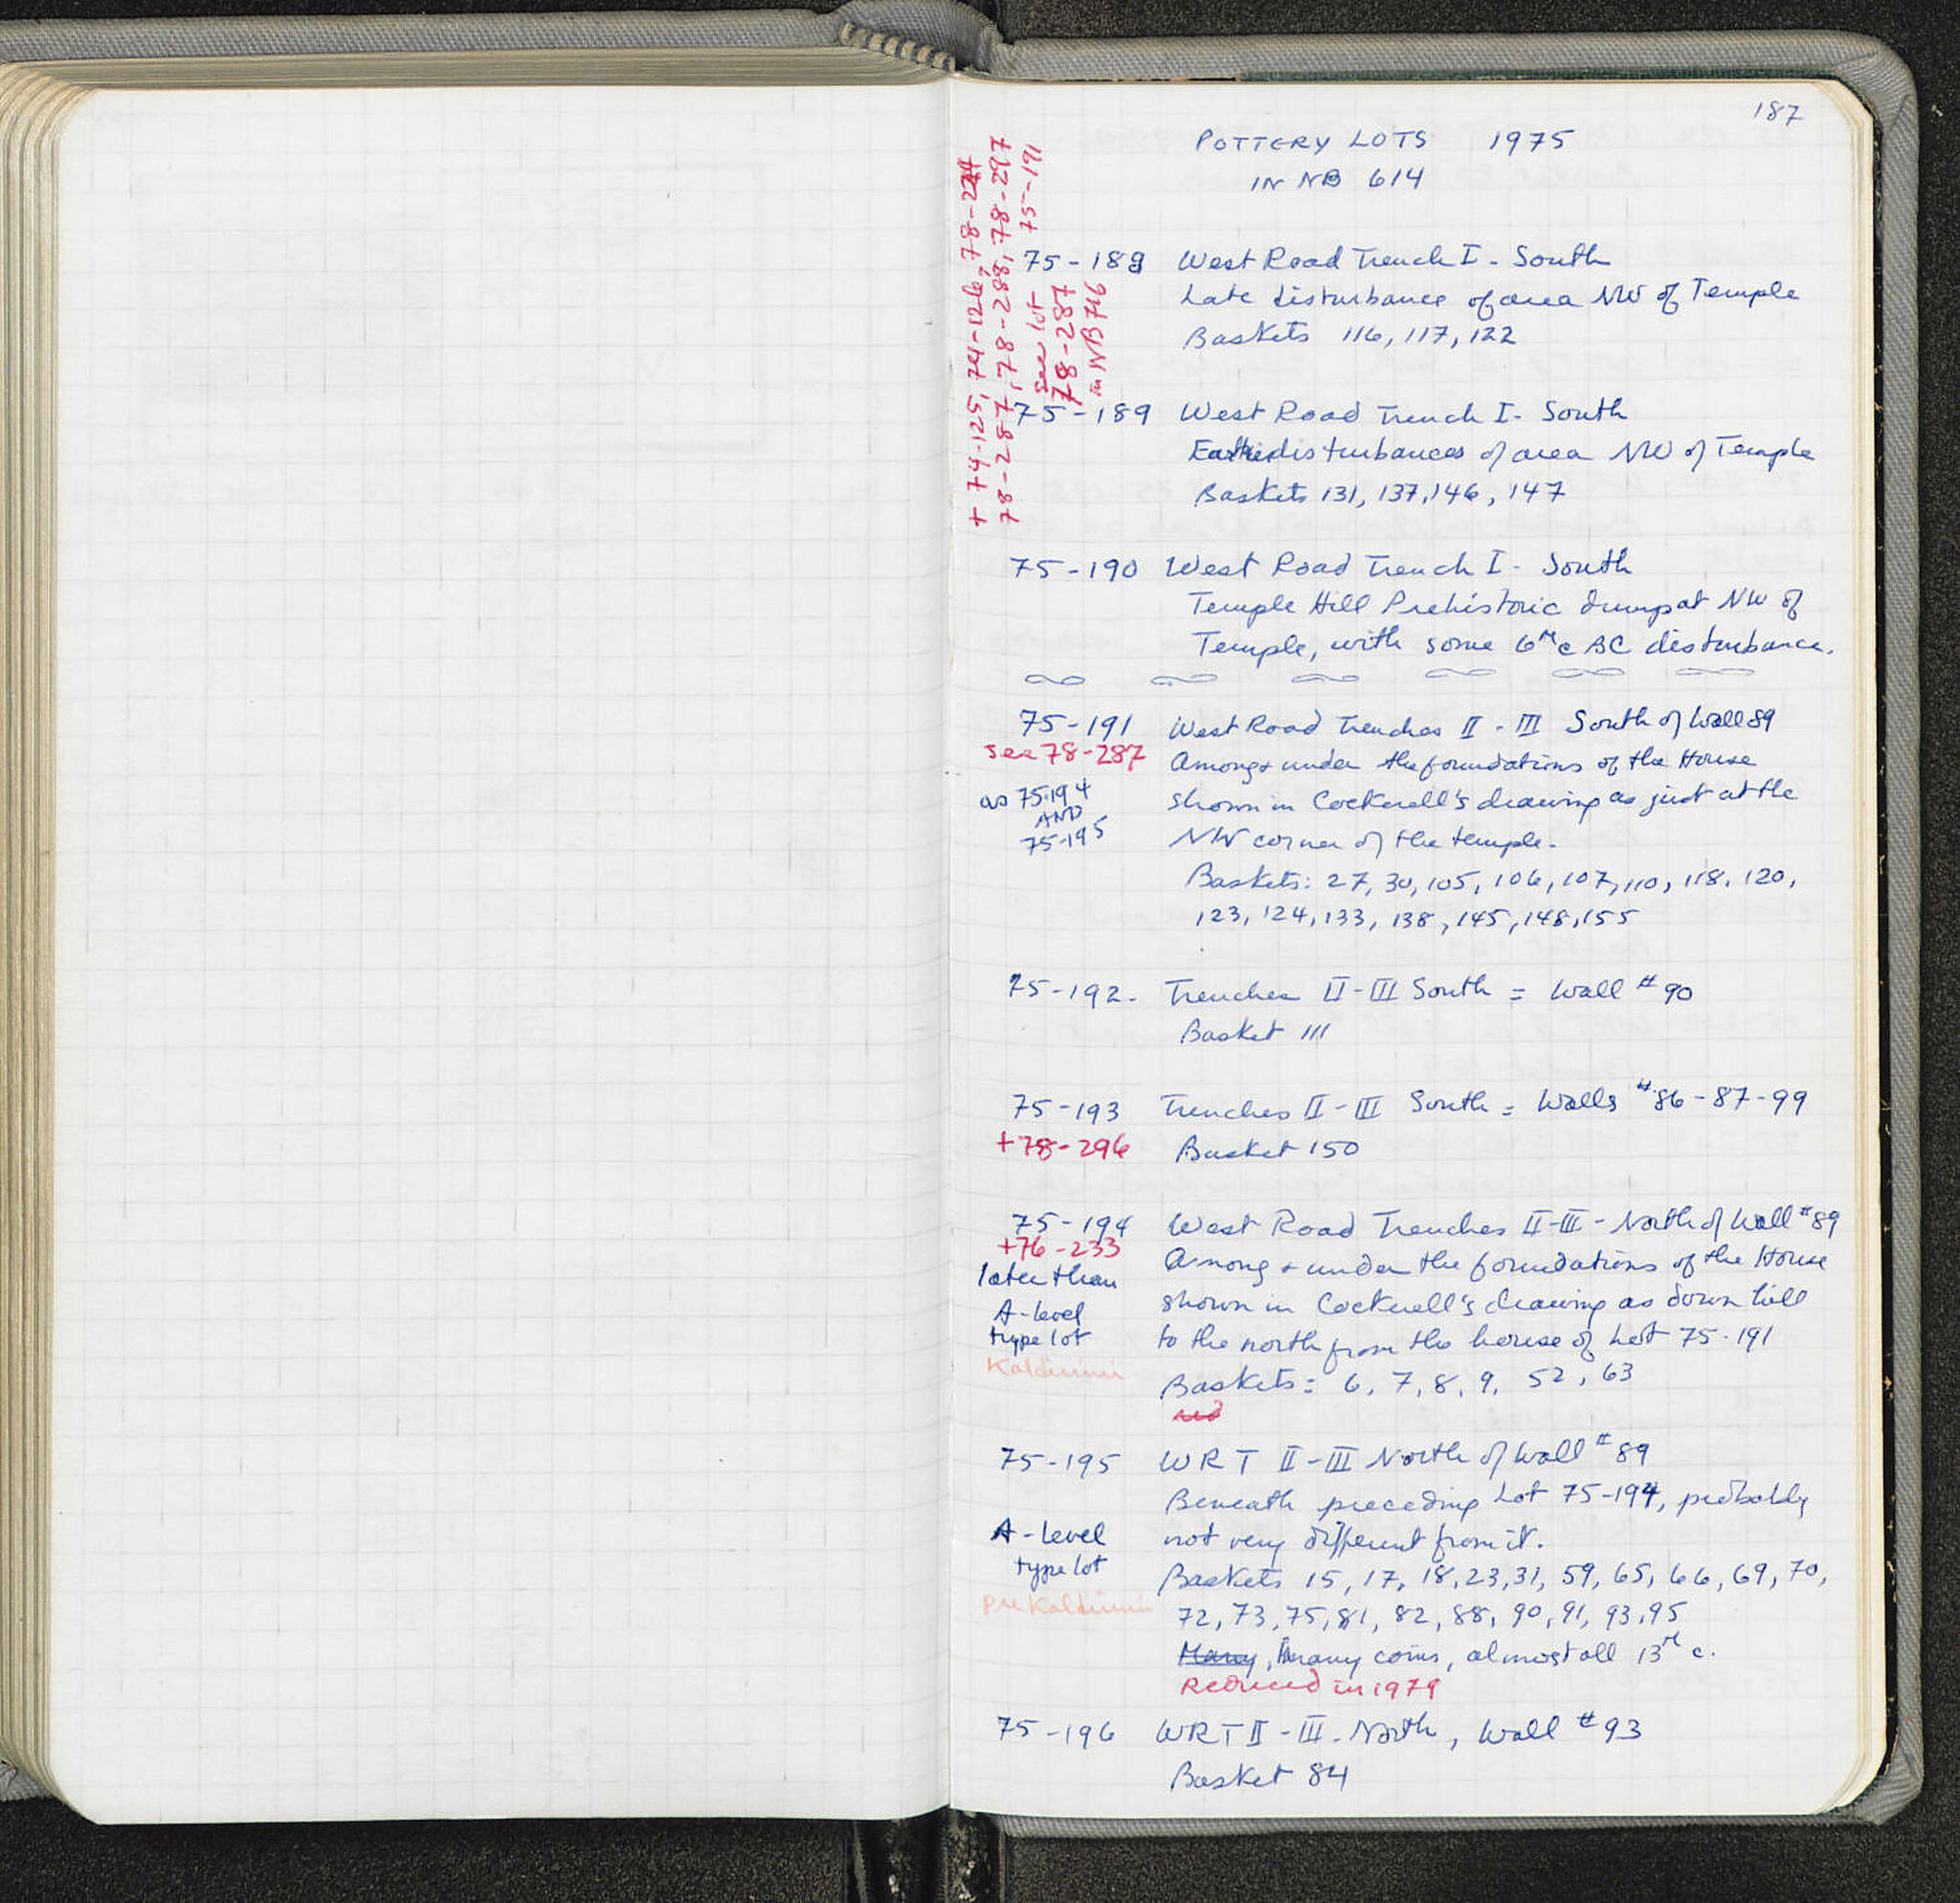 187
POTTERY LOTS 1975
IN NB 614
+ 74-125, 74-126, 78-
78-287, 78-288, 78-297
75-191
see lot
78-287
in NB 716
75-189 West Road Trench I - South
Late disturbance of area NW of Temple
Baskets 116, 117, 122
75-189 West Road Trench I - South
Earlier disturbances of area NW of Temple
Baskets 131, 137, 146, 147
75-190 West Road Trench I - South
Temple Hill Prehistoric dump at NW of
Temple, with some 6th c BC disturbance.
75-191 West Road Trenches II - III South of Wall 89
see 78-287 Among + under the foundations of the House
as 75-194 shown in Cockerell's drawing as just at the
AND
75-195 NW corner of the temple.
Baskets: 27, 30, 105, 106, 107, 110, 118, 120,
123, 124, 133, 138, 145, 148, 155
75-192. Trenches II-III South = Wall # 90
Basket 111
75-193 Trenches II-III South = Walls # 86-87-99
+78-296 Basket 150
75-194 West Road Trenches II-III - North of Wall # 89
+76-233 Among + under the foundations of the House
later than shown in Cockerell's drawing as down hill
A-level
type lot to the north from the house of Lot 75-191
Kaldirimi Baskets: 6, 7, 8, 9, 52, 63
red
75-195 WRT II-III North of Wall # 89
Beneath preceding Lot 75-194, probably
A-Level not very different from it.
type lot Baskets 15, 17, 18, 23, 31, 59, 65, 66, 69, 70,
Pre Kaldirimi 72, 73, 75, 81, 82, 88, 90, 91, 93, 95
Many, many coins, almost all 13th c.
Reduced in 1979
75-196 WRT II-III. North, Wall # 93
Basket 84